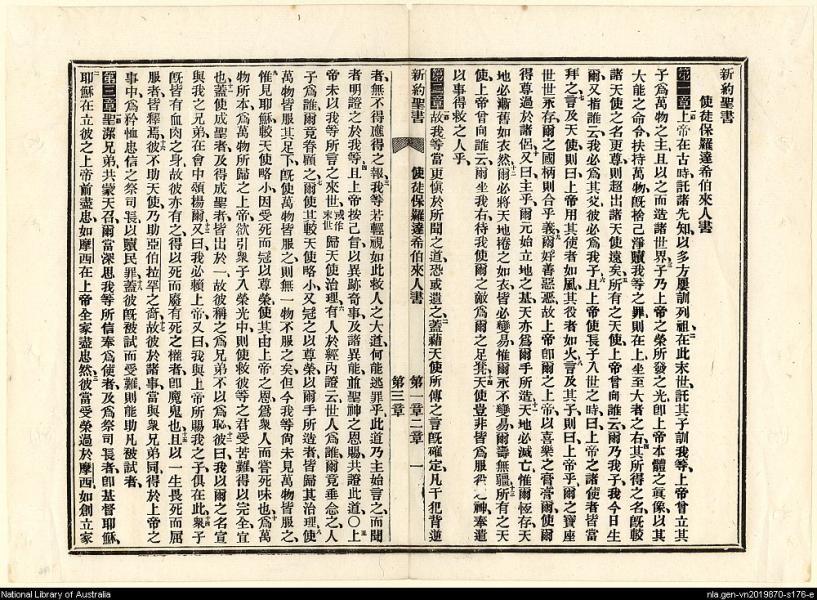 新約聖書
使徒保羅達希伯來人書
第一章上帝在古時託諸先知以多方屢訓列祖在此末世託其子訓我等上帝曾立其
子爲萬物之主且以之而造諸世界子乃上帝之榮所發之光卽上帝本體之眞像以其
大能之命令扶持萬物旣捨己淨贖我等之罪則在上坐至大者之右其所得之名旣較
諸天使之名更尊則超出諸天使遠矣所有之天使上帝曾向誰云爾乃我子我今日生
爾又指誰云我必爲其父彼必爲我子且上帝使長子入世之時曰上帝之諸使者皆當
拜之言及天使則曰上帝用其使者如風其役者如火言及其子則曰上帝乎爾之寶座
世世永存爾之國柄則合乎義爾好善惡惡故上帝卽爾之上帝以喜樂之膏膏爾使爾
得尊過於諸侶又曰主乎爾元始立地之基天亦爲爾手所造天地必滅亡惟爾恆存天
地必漸舊如衣然爾必將天地捲之如衣皆必變易惟爾永不變易爾壽無疆所有之天
使上帝曾向誰云爾坐我右待我使爾之敵爲爾之足凳天使豈非皆爲服役之神奉遣
以事得救之人乎
第二章故我等當更愼於所聞之道恐或遺之蓋藉天使所傳之言旣確定凡干犯背逆
新約聖書
使徒保羅達希伯來人書
第一章二章 一
第三章
者無不得應得之報我等若輕視如此救人之大道何能逃罪乎此道乃主始言之而聞
者明證之於我等且上帝按己旨以異跡奇事及諸異能並聖神之恩賜共證此道○上
帝未以我等所言之來世或作末世歸天使治理有人於經內證云世人爲誰爾竟垂念之人
子爲誰爾竟眷顧之爾使其較天使略小又冠之以尊榮以爾手所造者皆歸其治理使
萬物皆服其足下旣使萬物皆服之則無一物不服之矣但今我等尙未見萬物皆服之
惟見耶穌較天使略小因受死而冠以尊榮使其由上帝之恩爲衆人而嘗死味也爲萬
物所本爲萬物所歸之上帝欲引衆子入榮光中則使救彼等之君受苦難得以完全宜
也蓋使成聖者及得成聖者皆出於一故彼稱之爲兄弟不以爲恥彼曰我以爾之名宣
與我之兄弟在會中頌揚爾又曰我必賴上帝又曰我與上帝所賜我之子俱在此衆子
旣皆有血肉之身故彼亦有之得以死而廢有死之權者卽魔鬼也且以一生畏死而屬
服者皆釋焉彼不助天使乃助亞伯拉罕之裔故彼於諸事當與衆兄弟同得於上帝之
事中爲矜恤忠信之祭司長以贖民罪蓋彼旣被試而受難則能助凡被試者
第三章聖潔兄弟共蒙天召爾當深思我等所信奉爲使者及爲祭司長者卽基督耶穌
耶穌在立彼之上帝前盡忠如摩西在上帝全家盡忠然彼當受榮過於摩西如創立家
National Library of Australia
nla.gen-vn2019870-s176-e